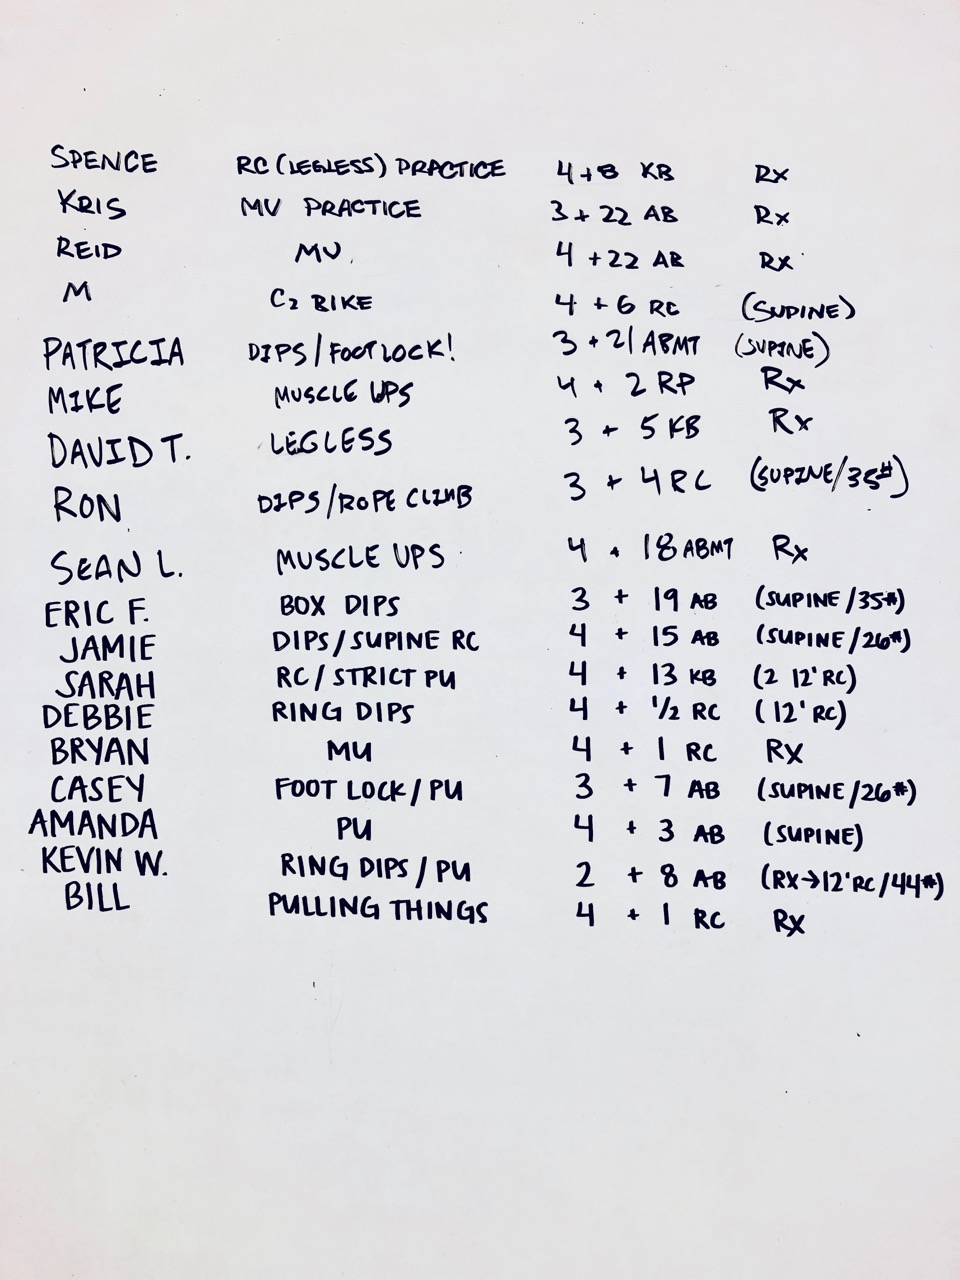 SPENCE RC (LEGLESS) PRACTICE 4+8 KB Rx
KRIS MU PRACTICE 3+22 AB Rx
REID MU 4+22 AB Rx
M C2 BIKE 4+6 RC (SUPINE)
PATRICIA DIPS/FOOT LOCK! 3+21 ABMT (SUPINE)
MIKE MUSCLE UPS 4+2 RP Rx
DAVID T. LEGLESS 3+5 KB Rx
RON DIPS/ROPE CLIMB 3+4 RC (SUPINE/35#)
SEAN L. MUSCLE UPS 4+18 ABMT Rx
ERIC F. BOX DIPS 3+19 AB (SUPINE/35#)
JAMIE DIPS/SUPINE RC 4+15 AB (SUPINE/26#)
SARAH RC/STRICT PU 4+13 KB (2 12' RC)
DEBBIE RING DIPS 4+1/2 RC (12' RC)
BRYAN MU 4+1 RC Rx
CASEY FOOT LOCK/PU 3+7 AB (SUPINE/26#)
AMANDA PU 4+3 AB (SUPINE)
KEVIN W. RING DIPS/PU 2+8 AB (RX→12' RC/44#)
BILL PULLING THINGS 4+1 RC Rx